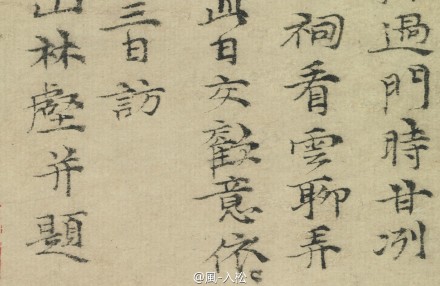 過門時甘冽
祠看雲聊弄
此日交歡意依〻
三日訪
山林并題
@凬-入松